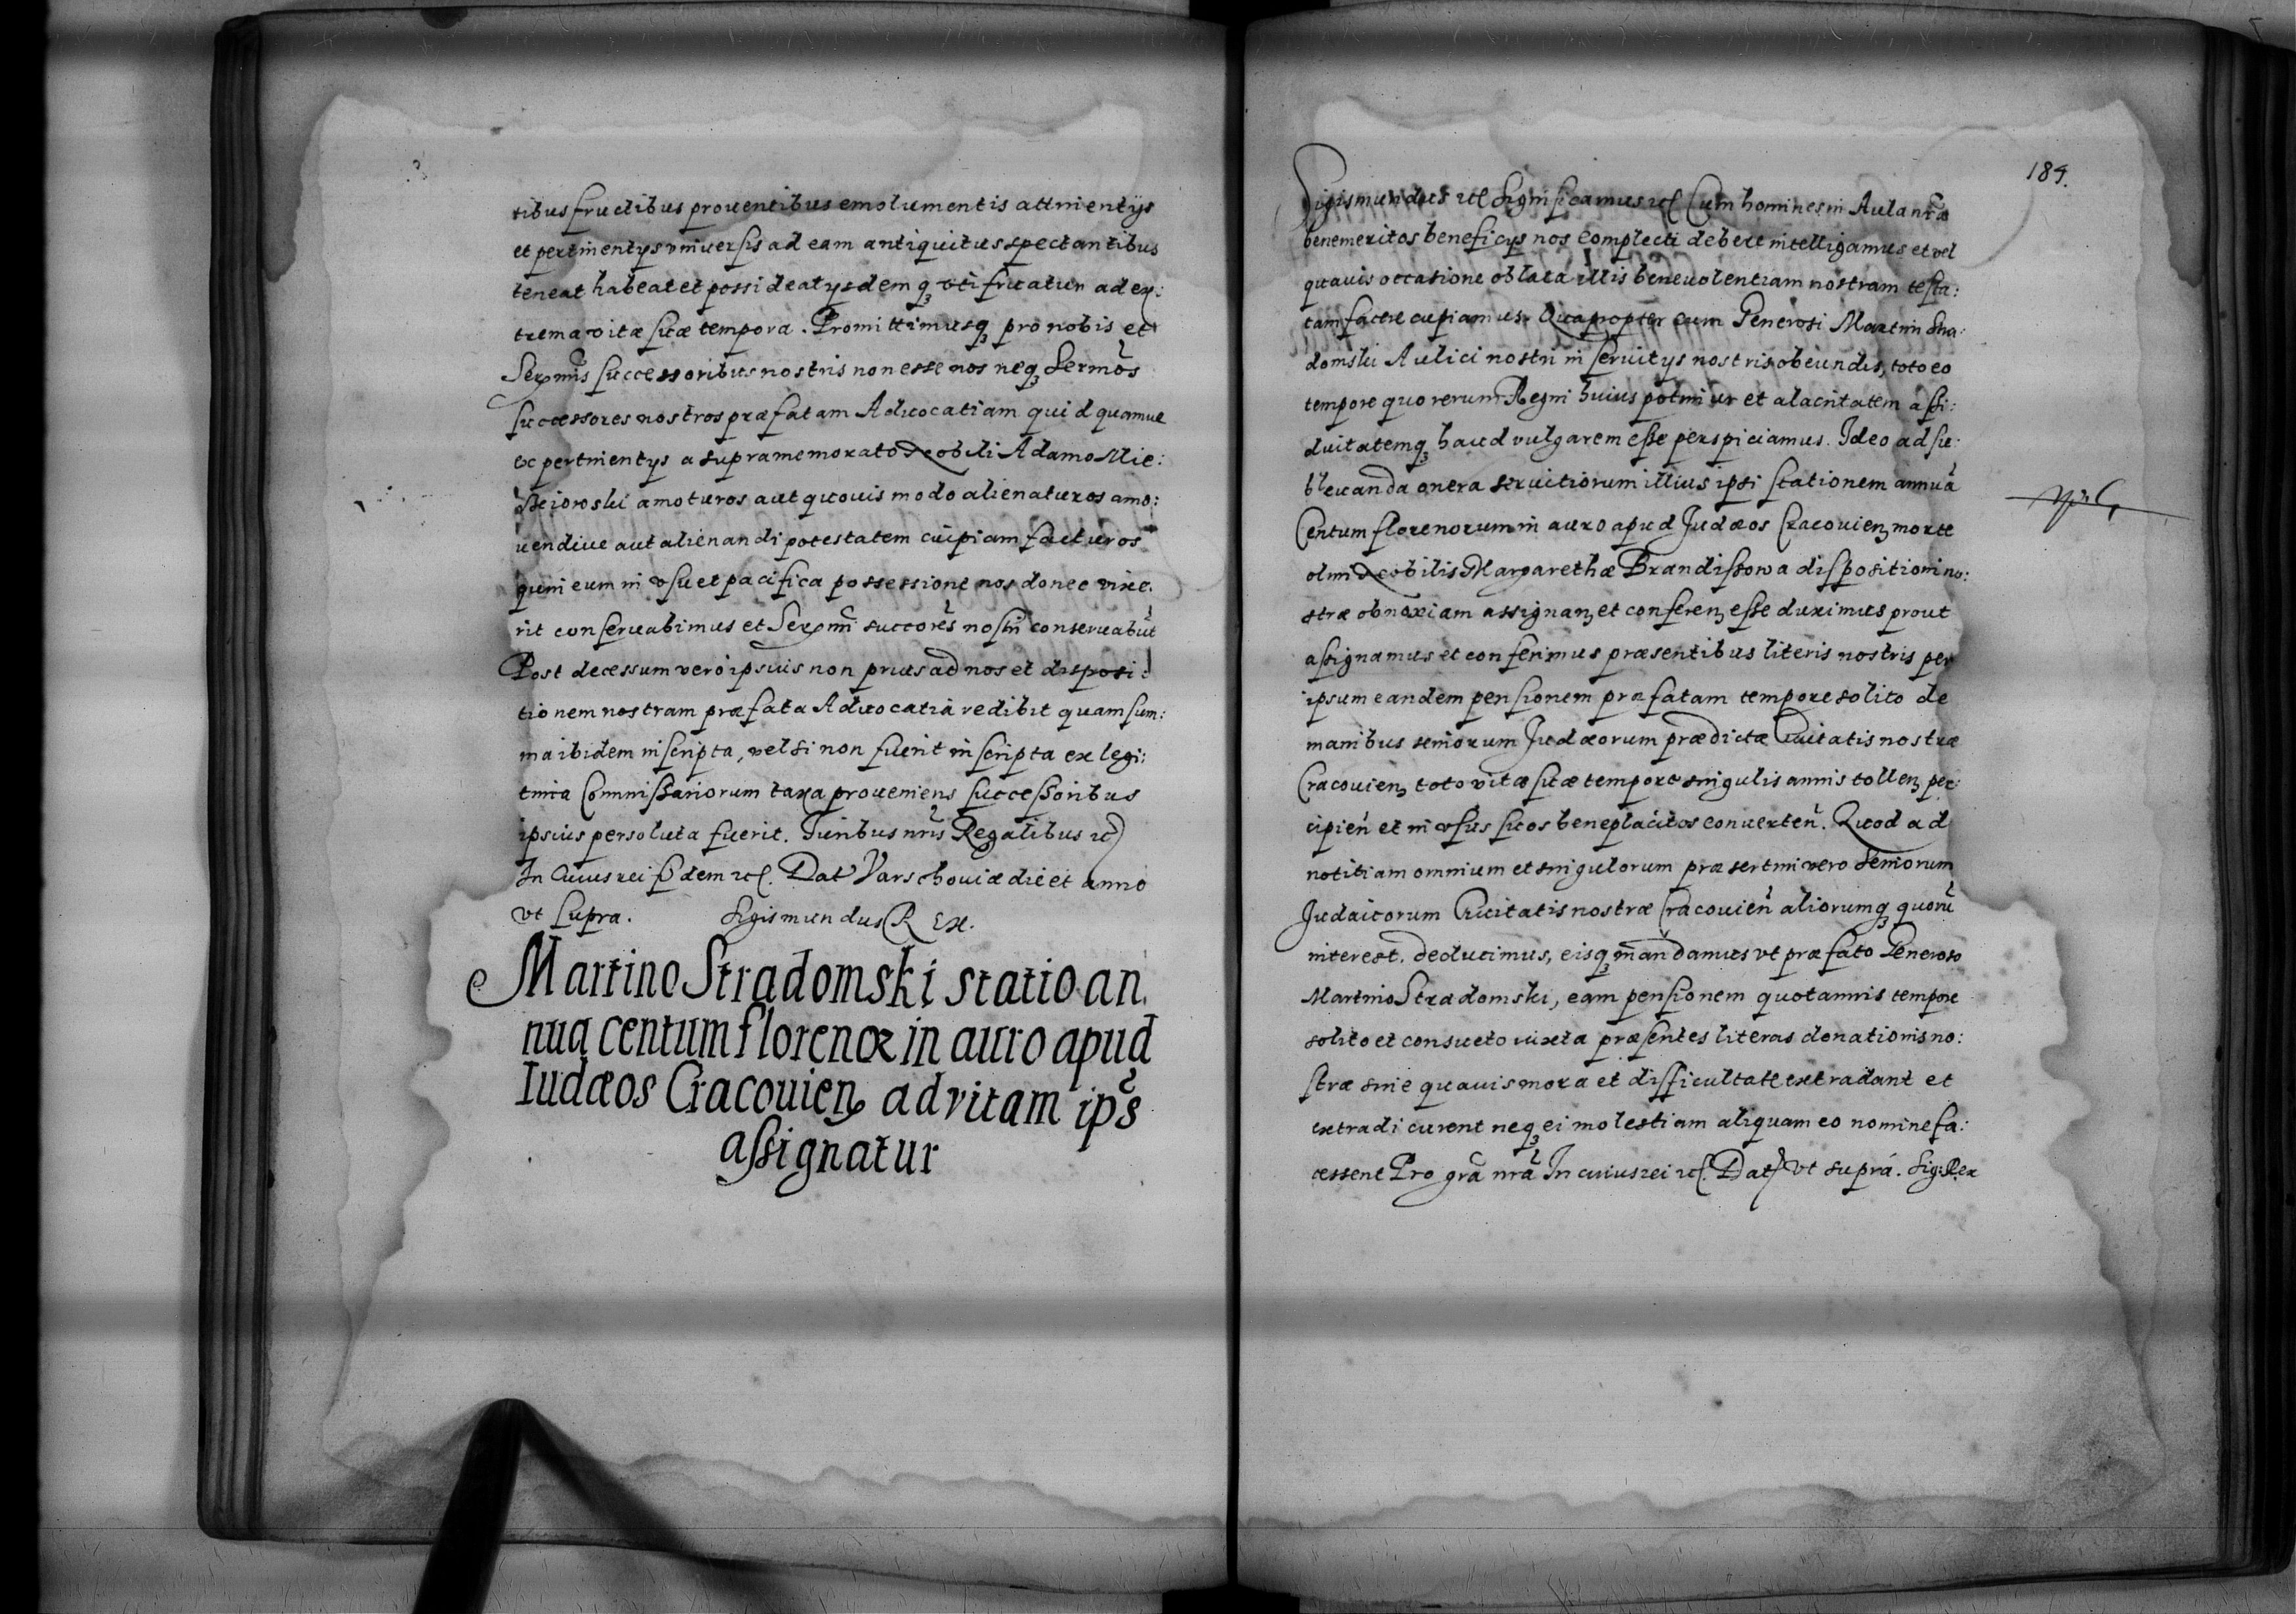 tibus fructibus prouentibus emolumentis attinentijs
et pertinentijs vniuersis ad eam antiquitus spectantibus
teneat habeat et possideat ijsdemq₃ vti fruatur ad ex:
trema vitæ suæ tempora. Promittimusq₃ pro nobis et
Sermis successoribus nostris non esse nos neq₃ Sermos
successores nostros præfatam Aduocatiam quidquamue
ex pertinentijs a supramemorato Nobili Adamo Mie:
amoturos aut quouis modo alienaturos amo:
uendiue aut alienandi potestatem cuipiam facturos
quin eum in vsu et pacifica possessione nos donec vixe.
rit conseruabimus et Sermi succores nostri conseruabut
Post decessum vero ipsius non prius ad nos et disposi:
tionem nostram præfata Aduocatia redibit quam sum:
ma ibidem inscripta, vel si non fuerit inscripta ex legi:
tima Commissariorum taxa proueniens successoribus
ipsius persoluta fuerit. Iuribus nris Regalibus etc
In Cuius rei fidem etc. Dat Varschouiæ die et anno
vt supra. Sigismundus Rex.
Martino Stradomski statio an
nua centum florenor in auro apud
Iudæos Cracouien₃ ad vitam ips
assignatur
189.
Sigismundus etc Significamus etc Cum homines in Aula nra
benemeritos beneficijs nos complecti debere intelligamus et vel
quauis occasione oblata illis beneuolentiam nostram testa:
tam facere cupiamus. Quapropter cum Generosi Martini Stra:
domski Aulici nostri in seruitijs nostris obeundis, toto eo
tempore quo rerum Regni huius potimur et alacritatem assi:
duitatemq₃ haud vulgarem esse perspiciamus. Ideo ad su:
bleuanda onera seruitiorum illius ipsi stationem annua
Centum florenorum in auro apud Judæos Cracouien₃ morte
olim Nobilis Margarethæ Brandissowa dispositioni no:
stræ obnoxiam assignan₃ et conferen₃ esse duximus prout
assignamus et conferimus præsentibus literis nostris per
ipsum eandem pensionem præfatam tempore solito de
manibus seniorum Judæorum prædictæ Ciuitatis nostræ
Cracouien₃ toto vitæ suæ tempore singulis annis tollen₃ per:
cipien et in vsus suos beneplacitos conuerten. Quod ad
notitiam omnium et singulorum præsertim vero Seniorum
Judaicorum Ciuitatis nostræ Cracouien aliorumq₃ quoru
interest. deducimus, eisq₃ mandamus vt præfato Generoso
Martino Stradomski, eam pensionem quotannis tempore
solito et consueto iuxta præsentes literas donationis no:
stræ sine quauis mora et difficultate extradant et
extradi curent neq₃ ei molestiam aliquam eo nomine fa:
cessent Pro gra nra In cuius rei etc. Dat vt supra. Sig: Rex